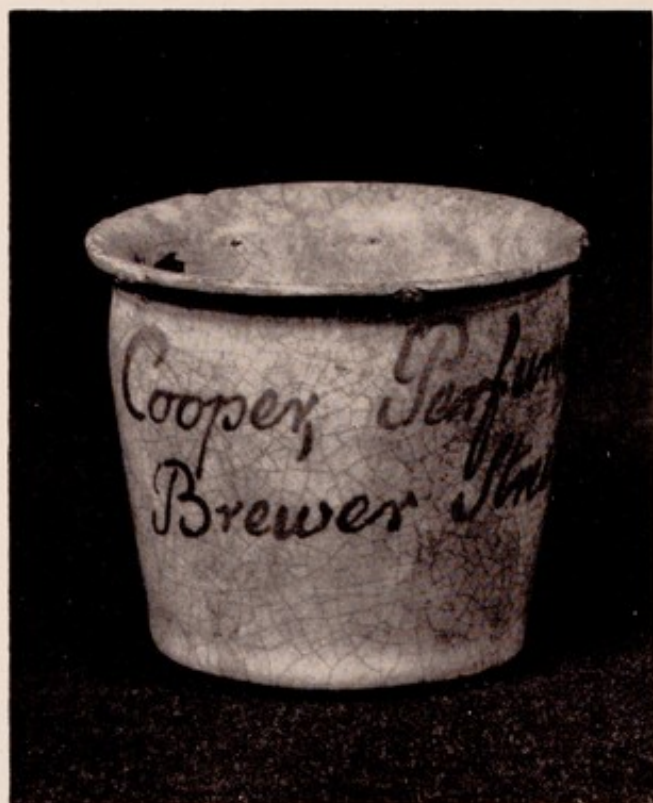 Cooper, Perfum
Brewer Stre